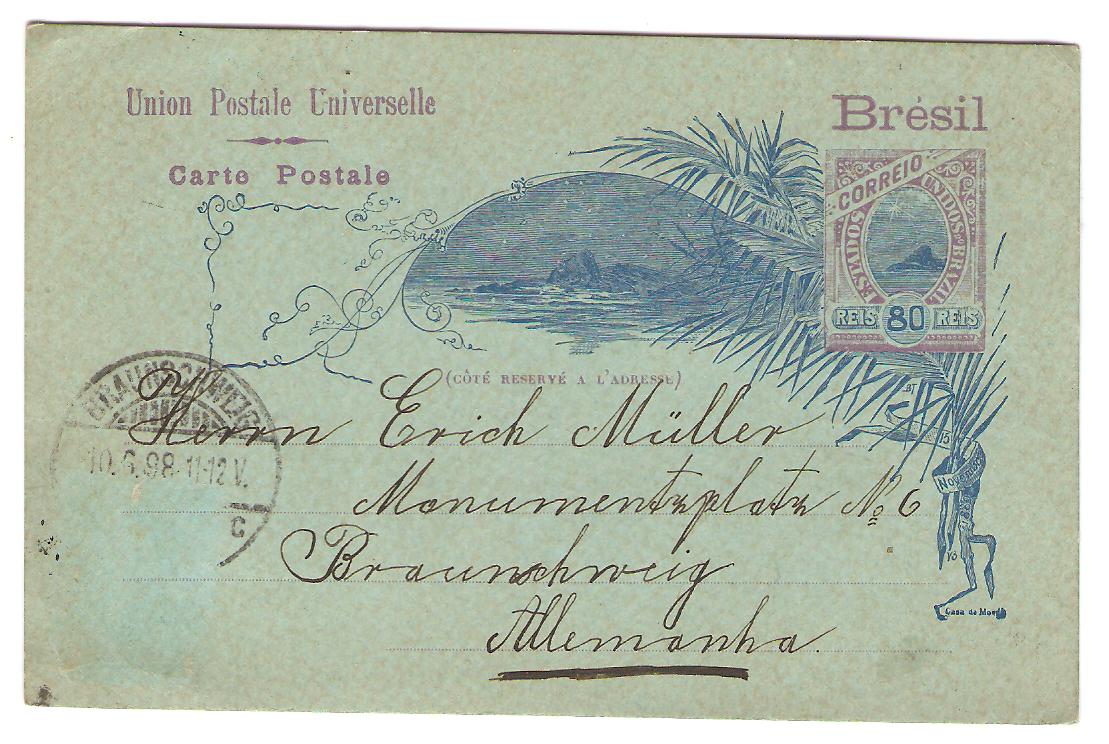 Union Postale Universelle
Carte Postale
Brésil
CORREIO
ESTADOS UNIDOS DO BRAZIL
REIS 80 REIS
(CÔTÉ RESERVÉ A L'ADRESSE)
BRAUNSCHWEIG
10.6.98 11-12 V.
C
Herrn Erich Müller
Monumentsplatz No 6
Braunschweig
Allemanha.
15
Novembro
Casa da Moeda